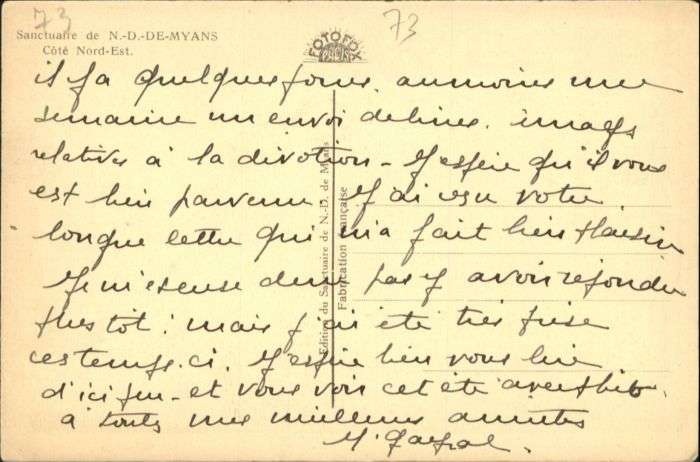 73
73
Sanctuaire de N.-D.-DE-MYANS
Côté Nord-Est.
FOTOFOX
il y a quelques jours, au moins une
semaine un envoi de livres. images
relatives à la dévotion - J'espère qu'il vous
est bien parvenu J'ai reçu votre
longue lettre qui m'a fait bien plaisir
Je m'excuse de ne pas y avoir répondu
plus tôt : mais j'ai été très prise
ces temps-ci. J'espère bien vous lire
d'ici peu - et vous voir cet été avec
à toutes mes meilleures amitiés
Edition du Sanctuaire de N.-D. de Myans
Fabrication Française